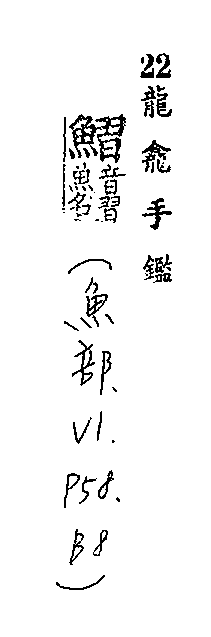 22龍龕手鑑
鰼音習魚名
(魚部、V1.P58、B8)